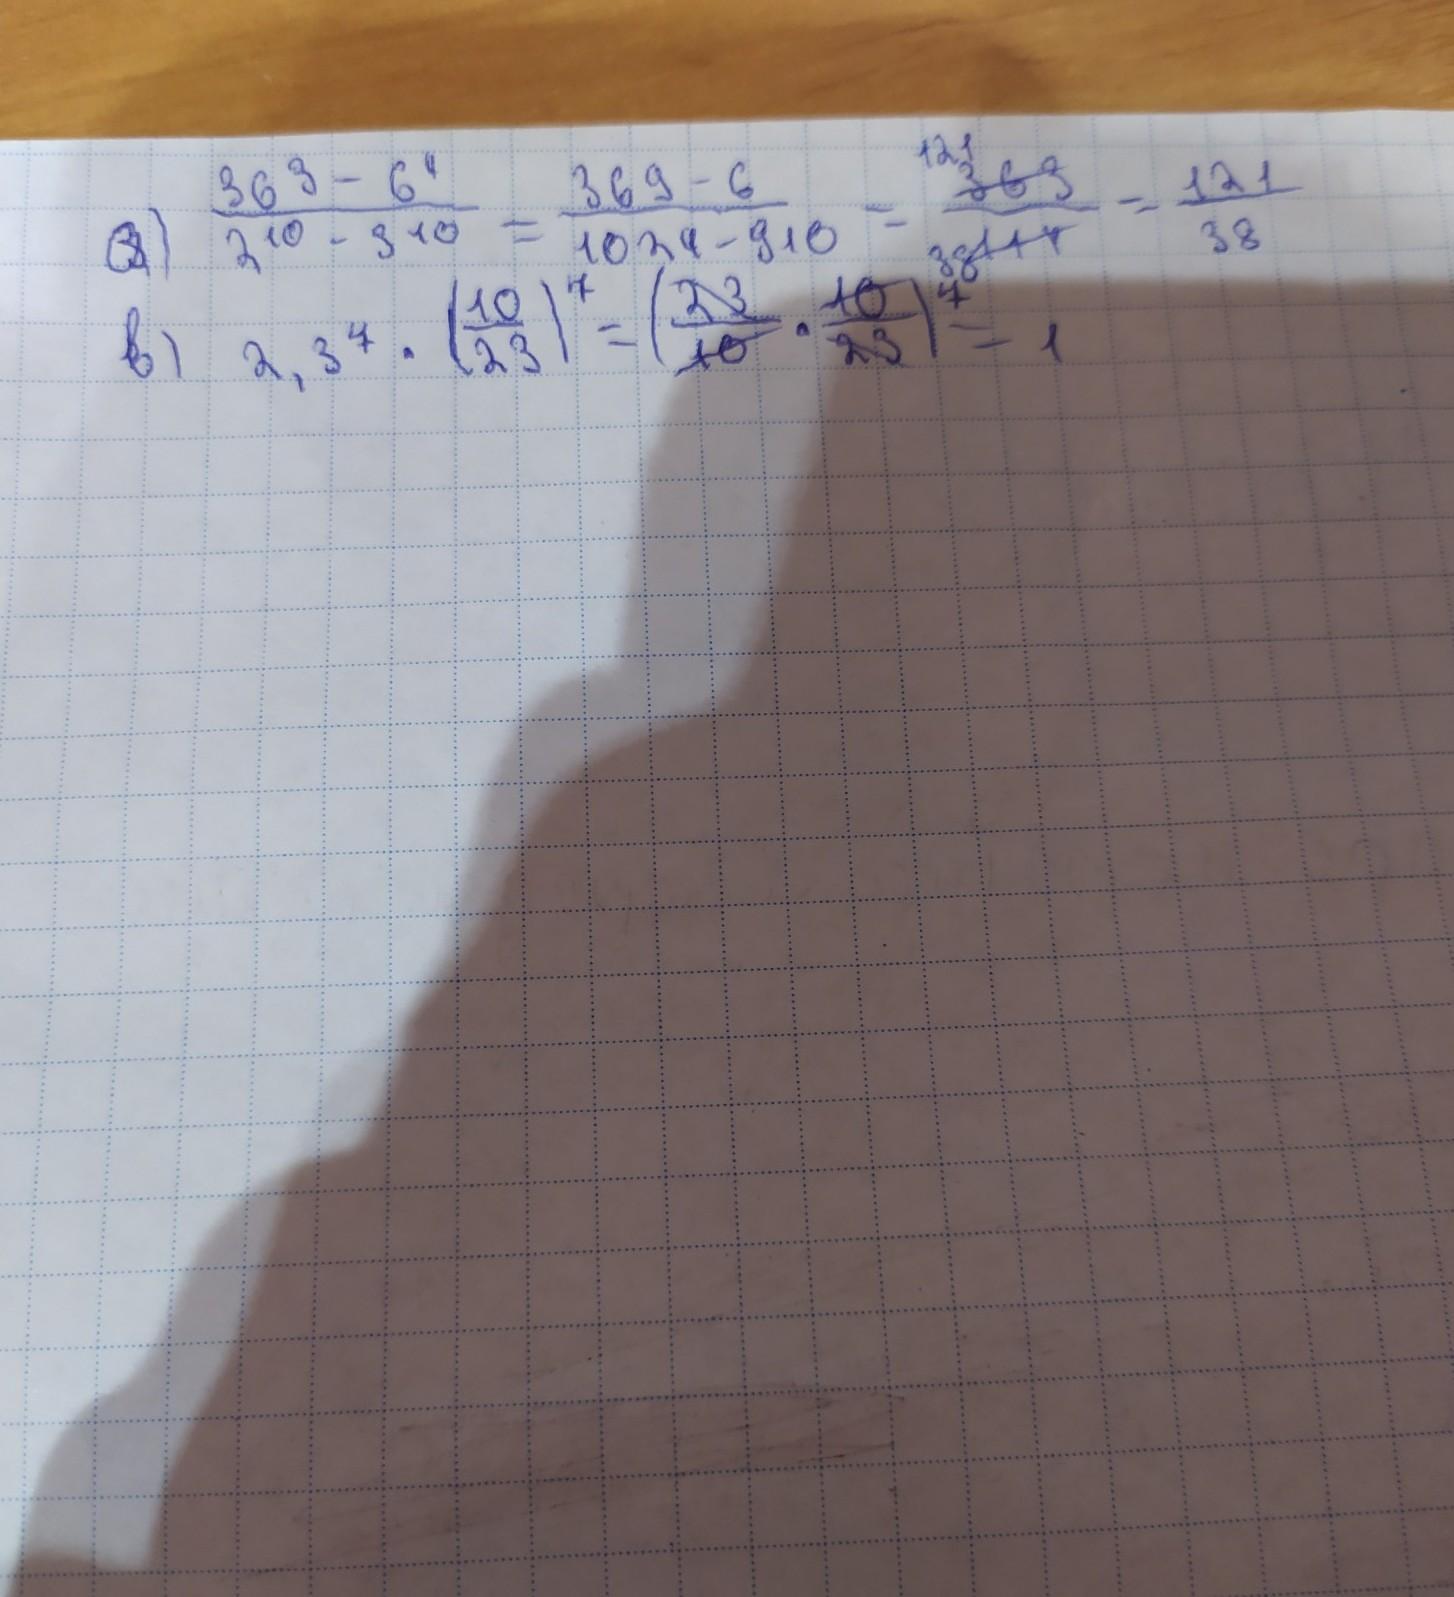 а) (363 - 6¹)/(2¹⁰ - 910) = (369 - 6)/(1024 - 910) = 363/114 = 121/38
в) 2,3⁷ · (10/23)⁷ = (23/10 · 10/23)⁷ = 1